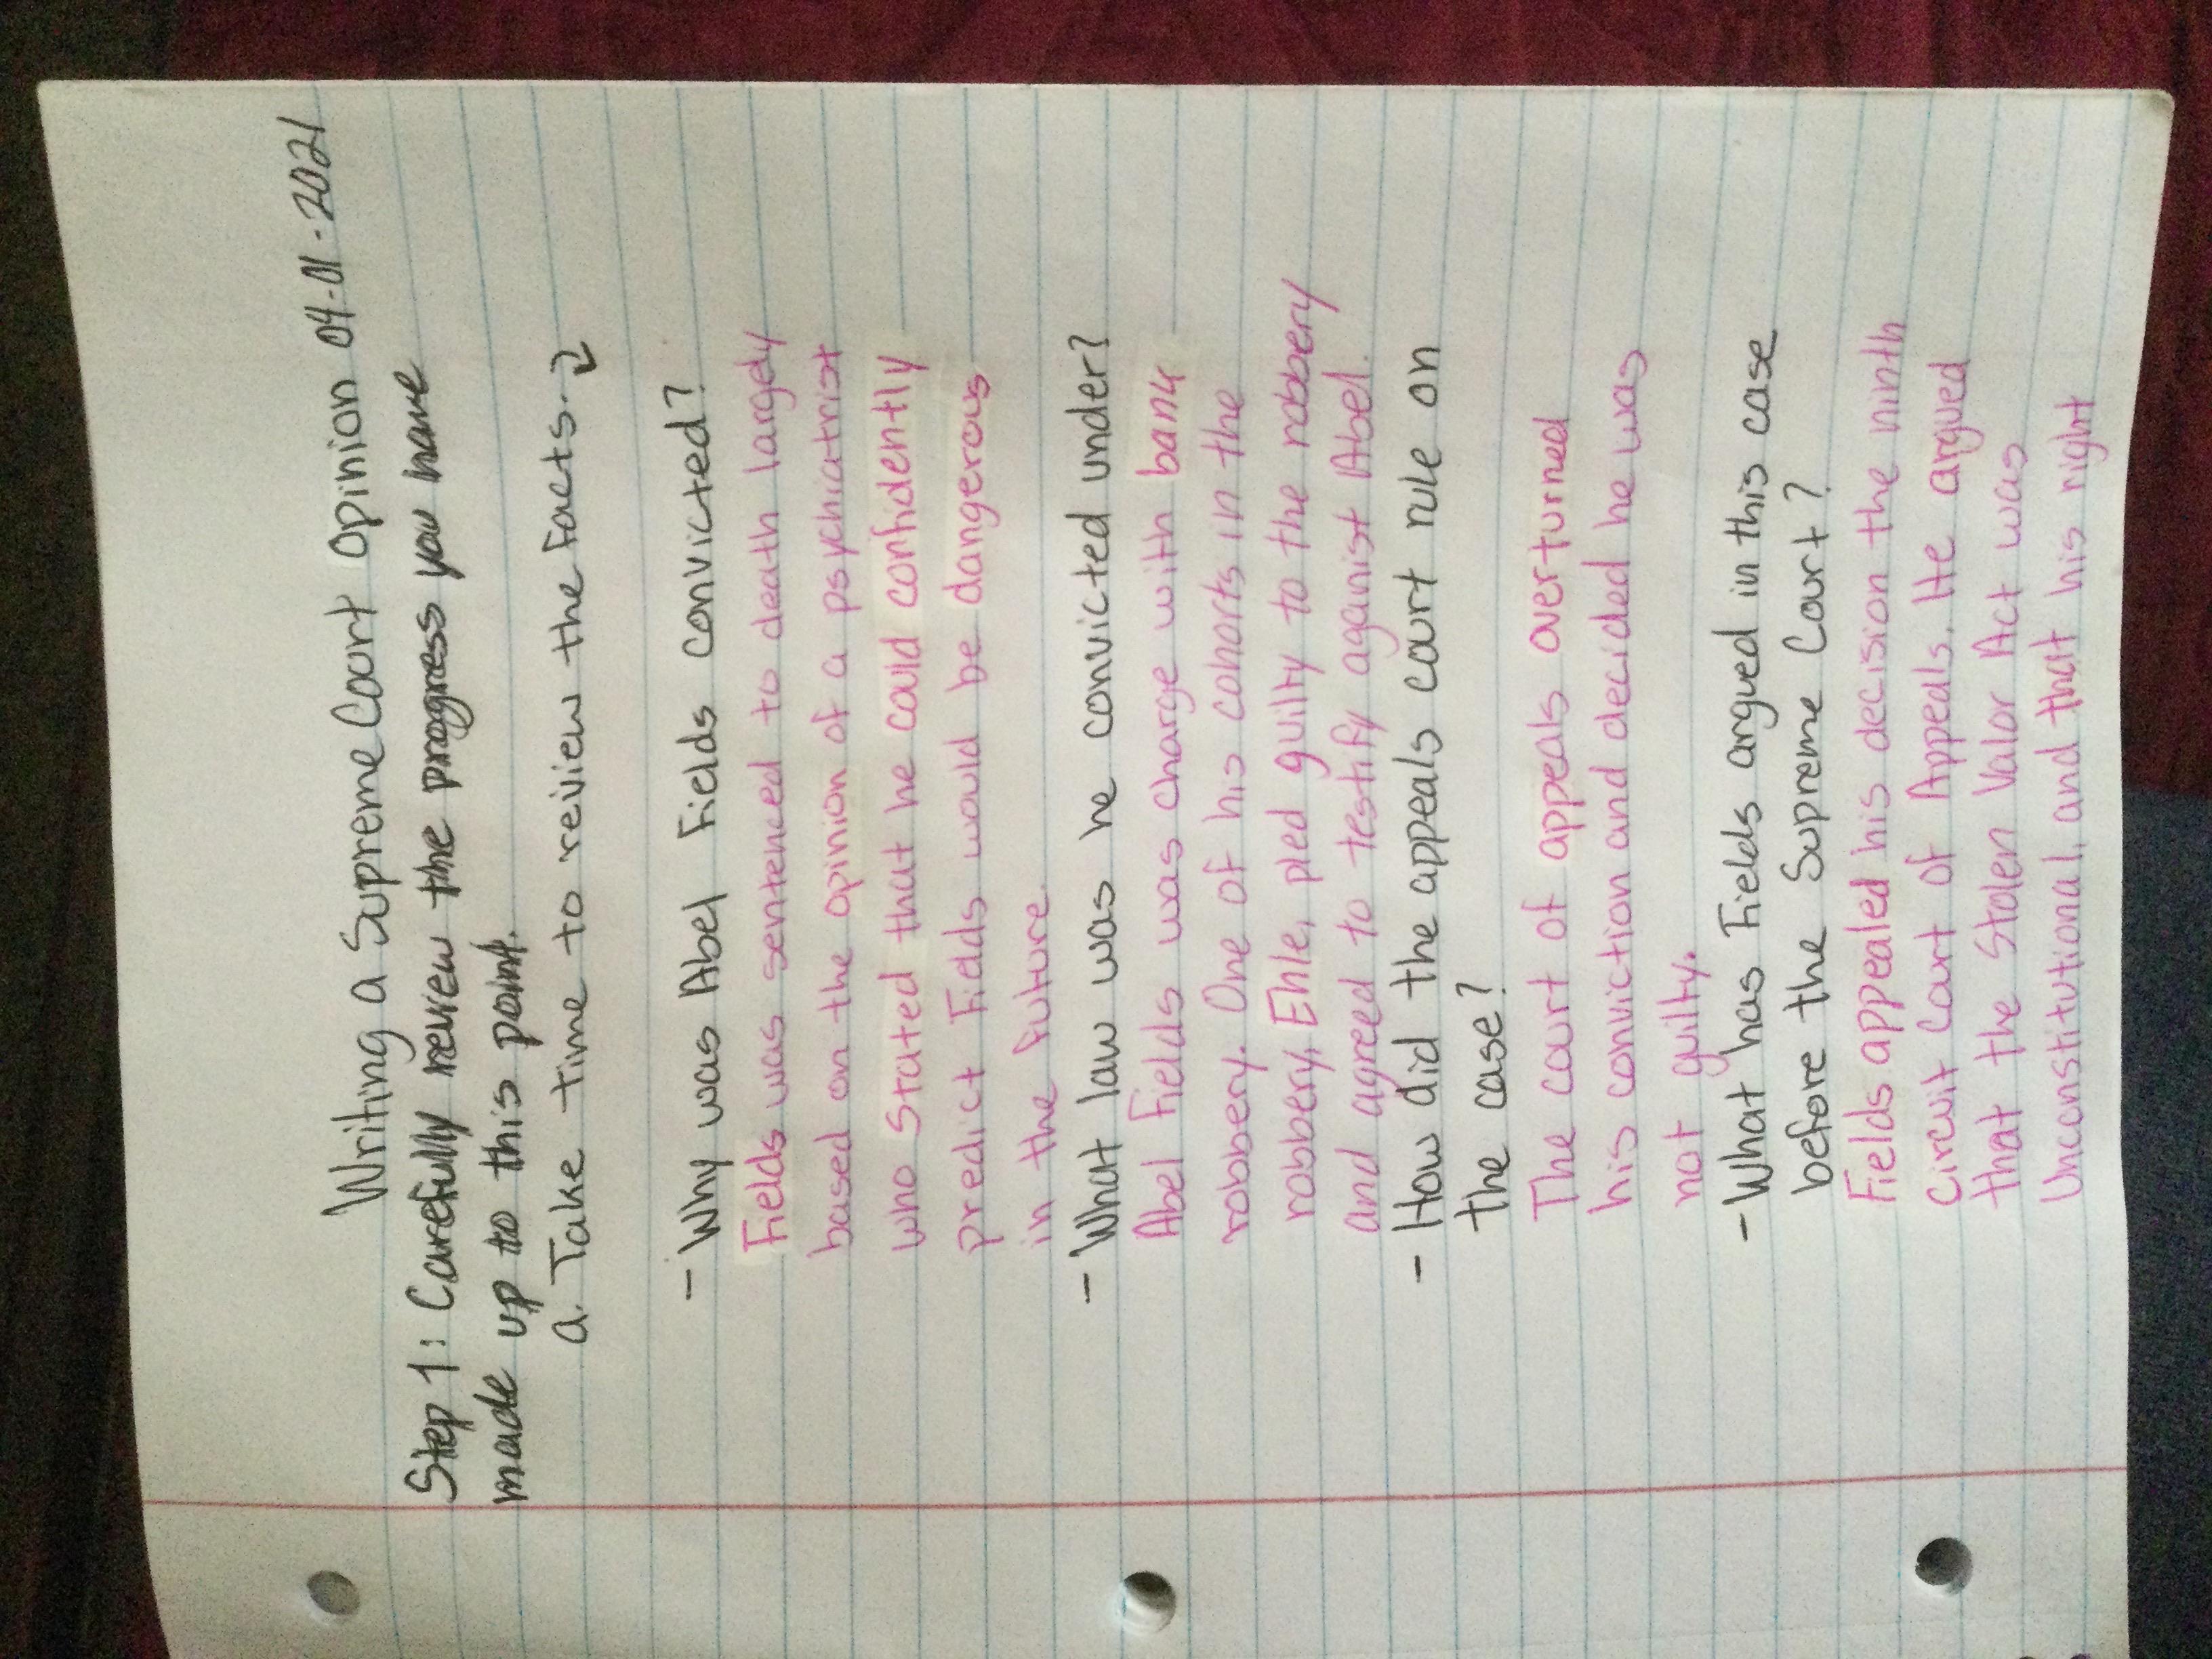 Writing a Supreme Court Opinion 04-01-2021
Step 1: Carefully review the progress you have
made up to this point.
a. Take time to reiview the facts.
- Why was Abel Fields convicted?
Fields was sentenced to death largely
based on the opinion of a psychiatrist
who stated that he could confidently
predict Fields would be dangerous
in the future
- What law was he convicted under?
Abel Fields was charge with bank
robbery. One of his cohorts in the
robbery, Ehle, pled guilty to the robbery
and agreed to testify aganist Abel.
- How did the appeals court rule on
the case?
The court of appeals overturned
his conviction and decided he was
not guilty.
- What has Fields argued in this case
before the Supreme Court?
Fields appealed his decision the ninth
Circuit Court of Appeals. He argued
that the Stolen Valor Act was
Unconstitutional, and that his right